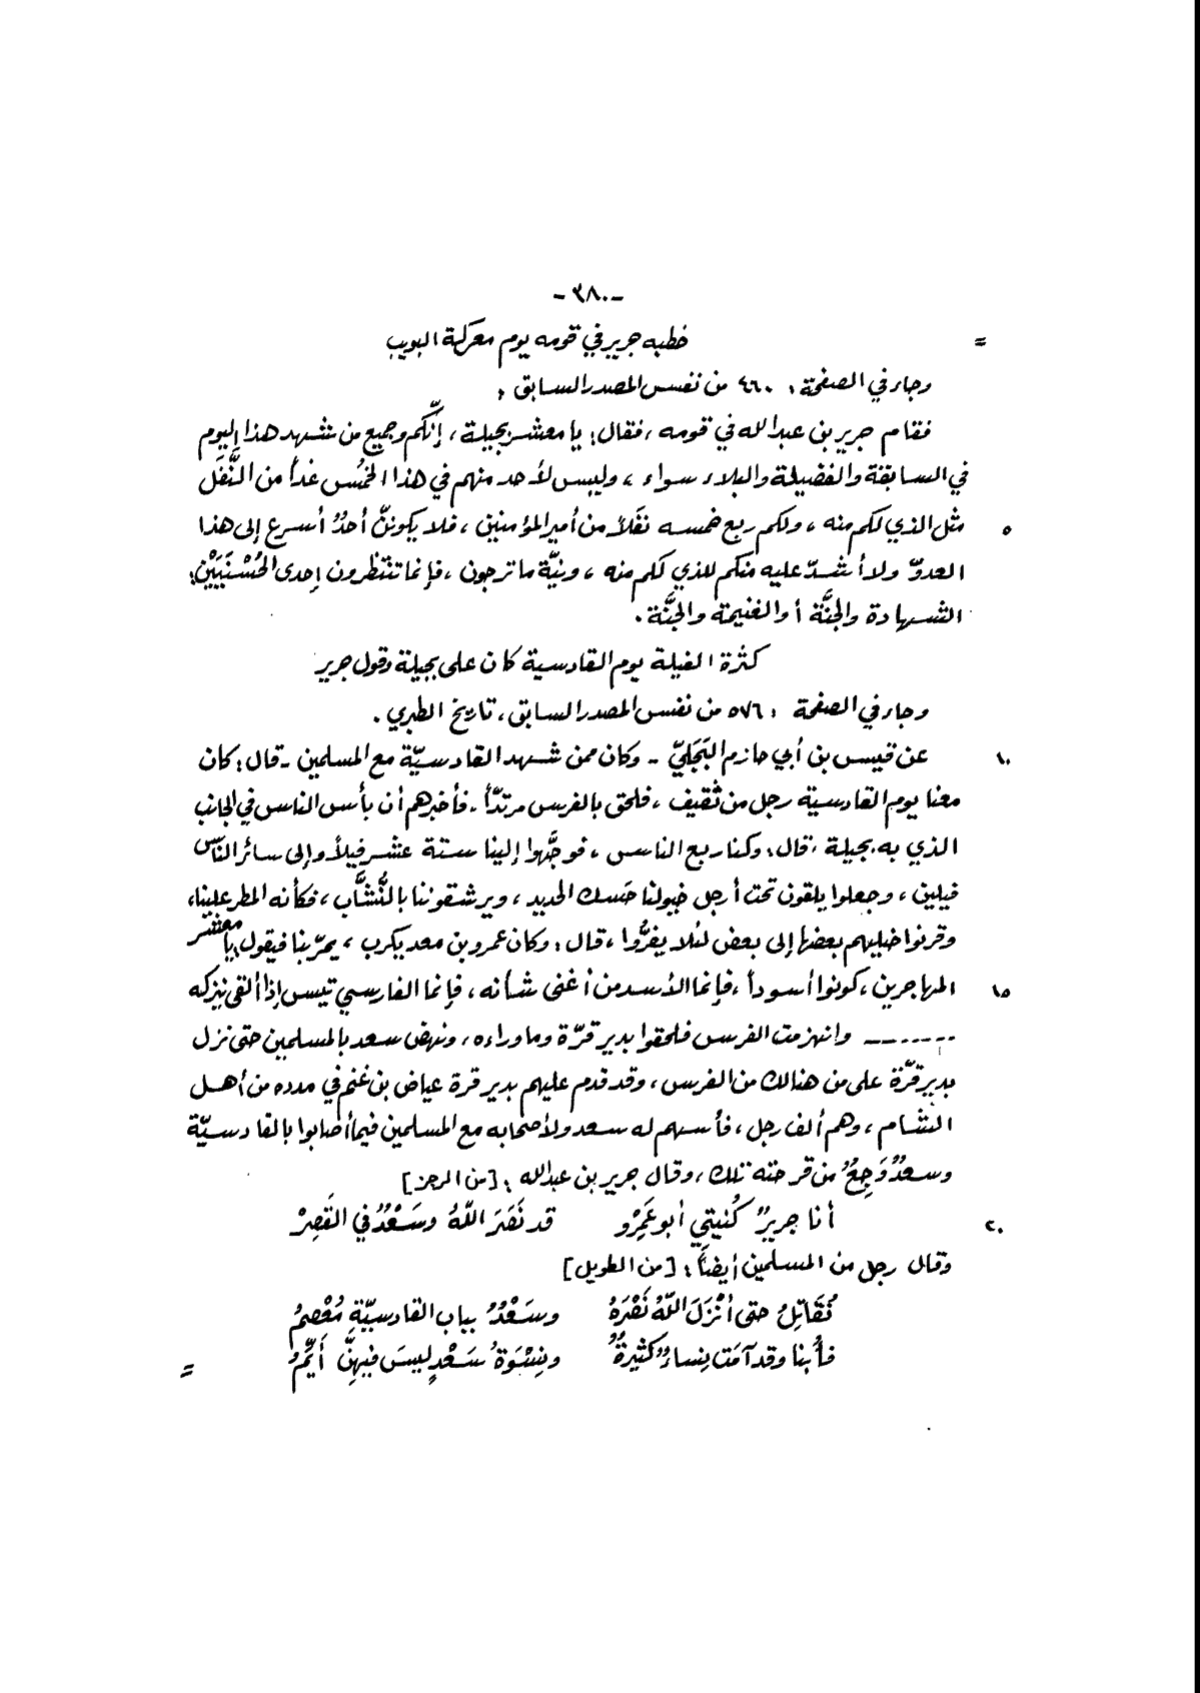 -٣٨٠-
= خطبه جرير في قومه يوم معركة البويب
وجاء في الصفحة: ٤٦٠ من نفس المصدر السابق:
فقام جرير بن عبد الله في قومه، فقال: يا معشر بجيلة، إنّكم وجميع من شهد هذا اليوم
في السابقة والفضيلة والبلاء سواء، وليس لأحد منهم في هذا الخُمُس غداً من النَّفَل
٥ مثل الذي لكم منه، ولكم ربع خمسه نَفَلاً من أمير المؤمنين، فلا يكوننّ أحدٌ أسرع إلى هذا
العدوّ ولا أشدّ عليه منكم للذي لكم منه، ونيّة ما ترجون، فإنما تنتظرون إحدى الحُسْنَيَيْن:
الشهادة والجنَّة أو الغنيمة والجنَّة.
كثرة الفيلة يوم القادسية كان على بجيلة وقول جرير
وجاء في الصفحة: ٥٧٦ من نفس المصدر السابق، تاريخ الطبري.
١٠ عن قيس بن أبي حازم البَجَليّ - وكان ممن شهد القادسيّة مع المسلمين - قال: كان
معنا يوم القادسيّة رجل من ثقيف، فلحق بالفرس مرتدّاً، فأخبرهم أن بأس الناس في الجانب
الذي به بجيلة، قال: وكنا ربع الناس، فوجَّهوا إلينا ستة عشر فيلاً وإلى سائر الناس
فيلين، وجعلوا يلقون تحت أرجل خيولنا حَسك الحديد، ويرشقوننا بالنُّشَّاب، فكأنه المطر علينا،
وقرنوا خيلهم بعضها إلى بعض لئلا يفرُّوا، قال: وكان عمرو بن معد يكرب، يمرّ بنا فيقول: يا معشر
١٥ المهاجرين، كونوا أسوداً، فإنما الأسد من أغنى شأنه، فإنما الفارسي تيس إذا ألقى نيزكه
....... وانهزمت الفرس فلحقوا بدير قرّة وما وراءه، ونهض سعد بالمسلمين حتى نزل
بدير قرّة على من هنالك من الفرس، وقد قدم عليهم بدير قرة عياض بن غنم في مدده من أهل
الشام، وهم ألف رجل، فأسهم له سعد ولأصحابه مع المسلمين فيما أصابوا بالقادسيّة
وسعدٌ وَجِعٌ من قرحته تلك، وقال جرير بن عبد الله: [من الرجز]
٢٠ أنا جريرٌ كُنيتي أبو عَمِرْو قد نَصَرَ اللّهُ وسَعْدٌ في القَصِرْ
وقال رجل من المسلمين أيضاً: [من الطويل]
نُقَاتِلُ حتى أنْزَلَ اللّهُ نَصْرَهُ وسَعْدٌ بباب القادسيّةِ مُعْصِمُ
فأُبنا وقد آمَت نِساءٌ كثيرةٌ ونِسْوَةُ سَعْدٍ ليسَ فيهِنَّ أيِّمُ =